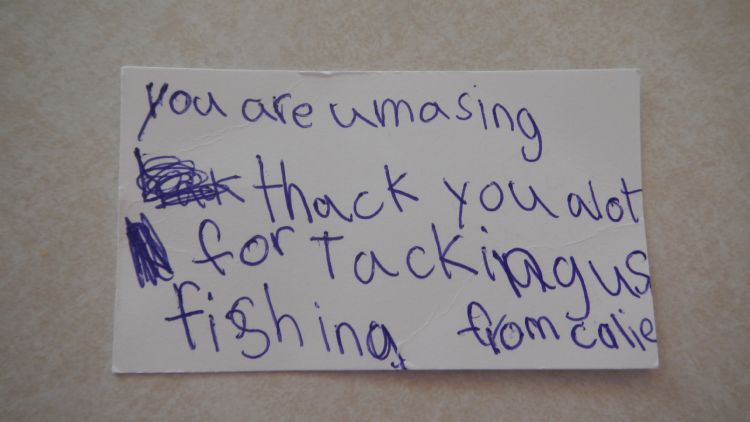 you are umasing
thack you alot
for Tacking us
fishing from calie